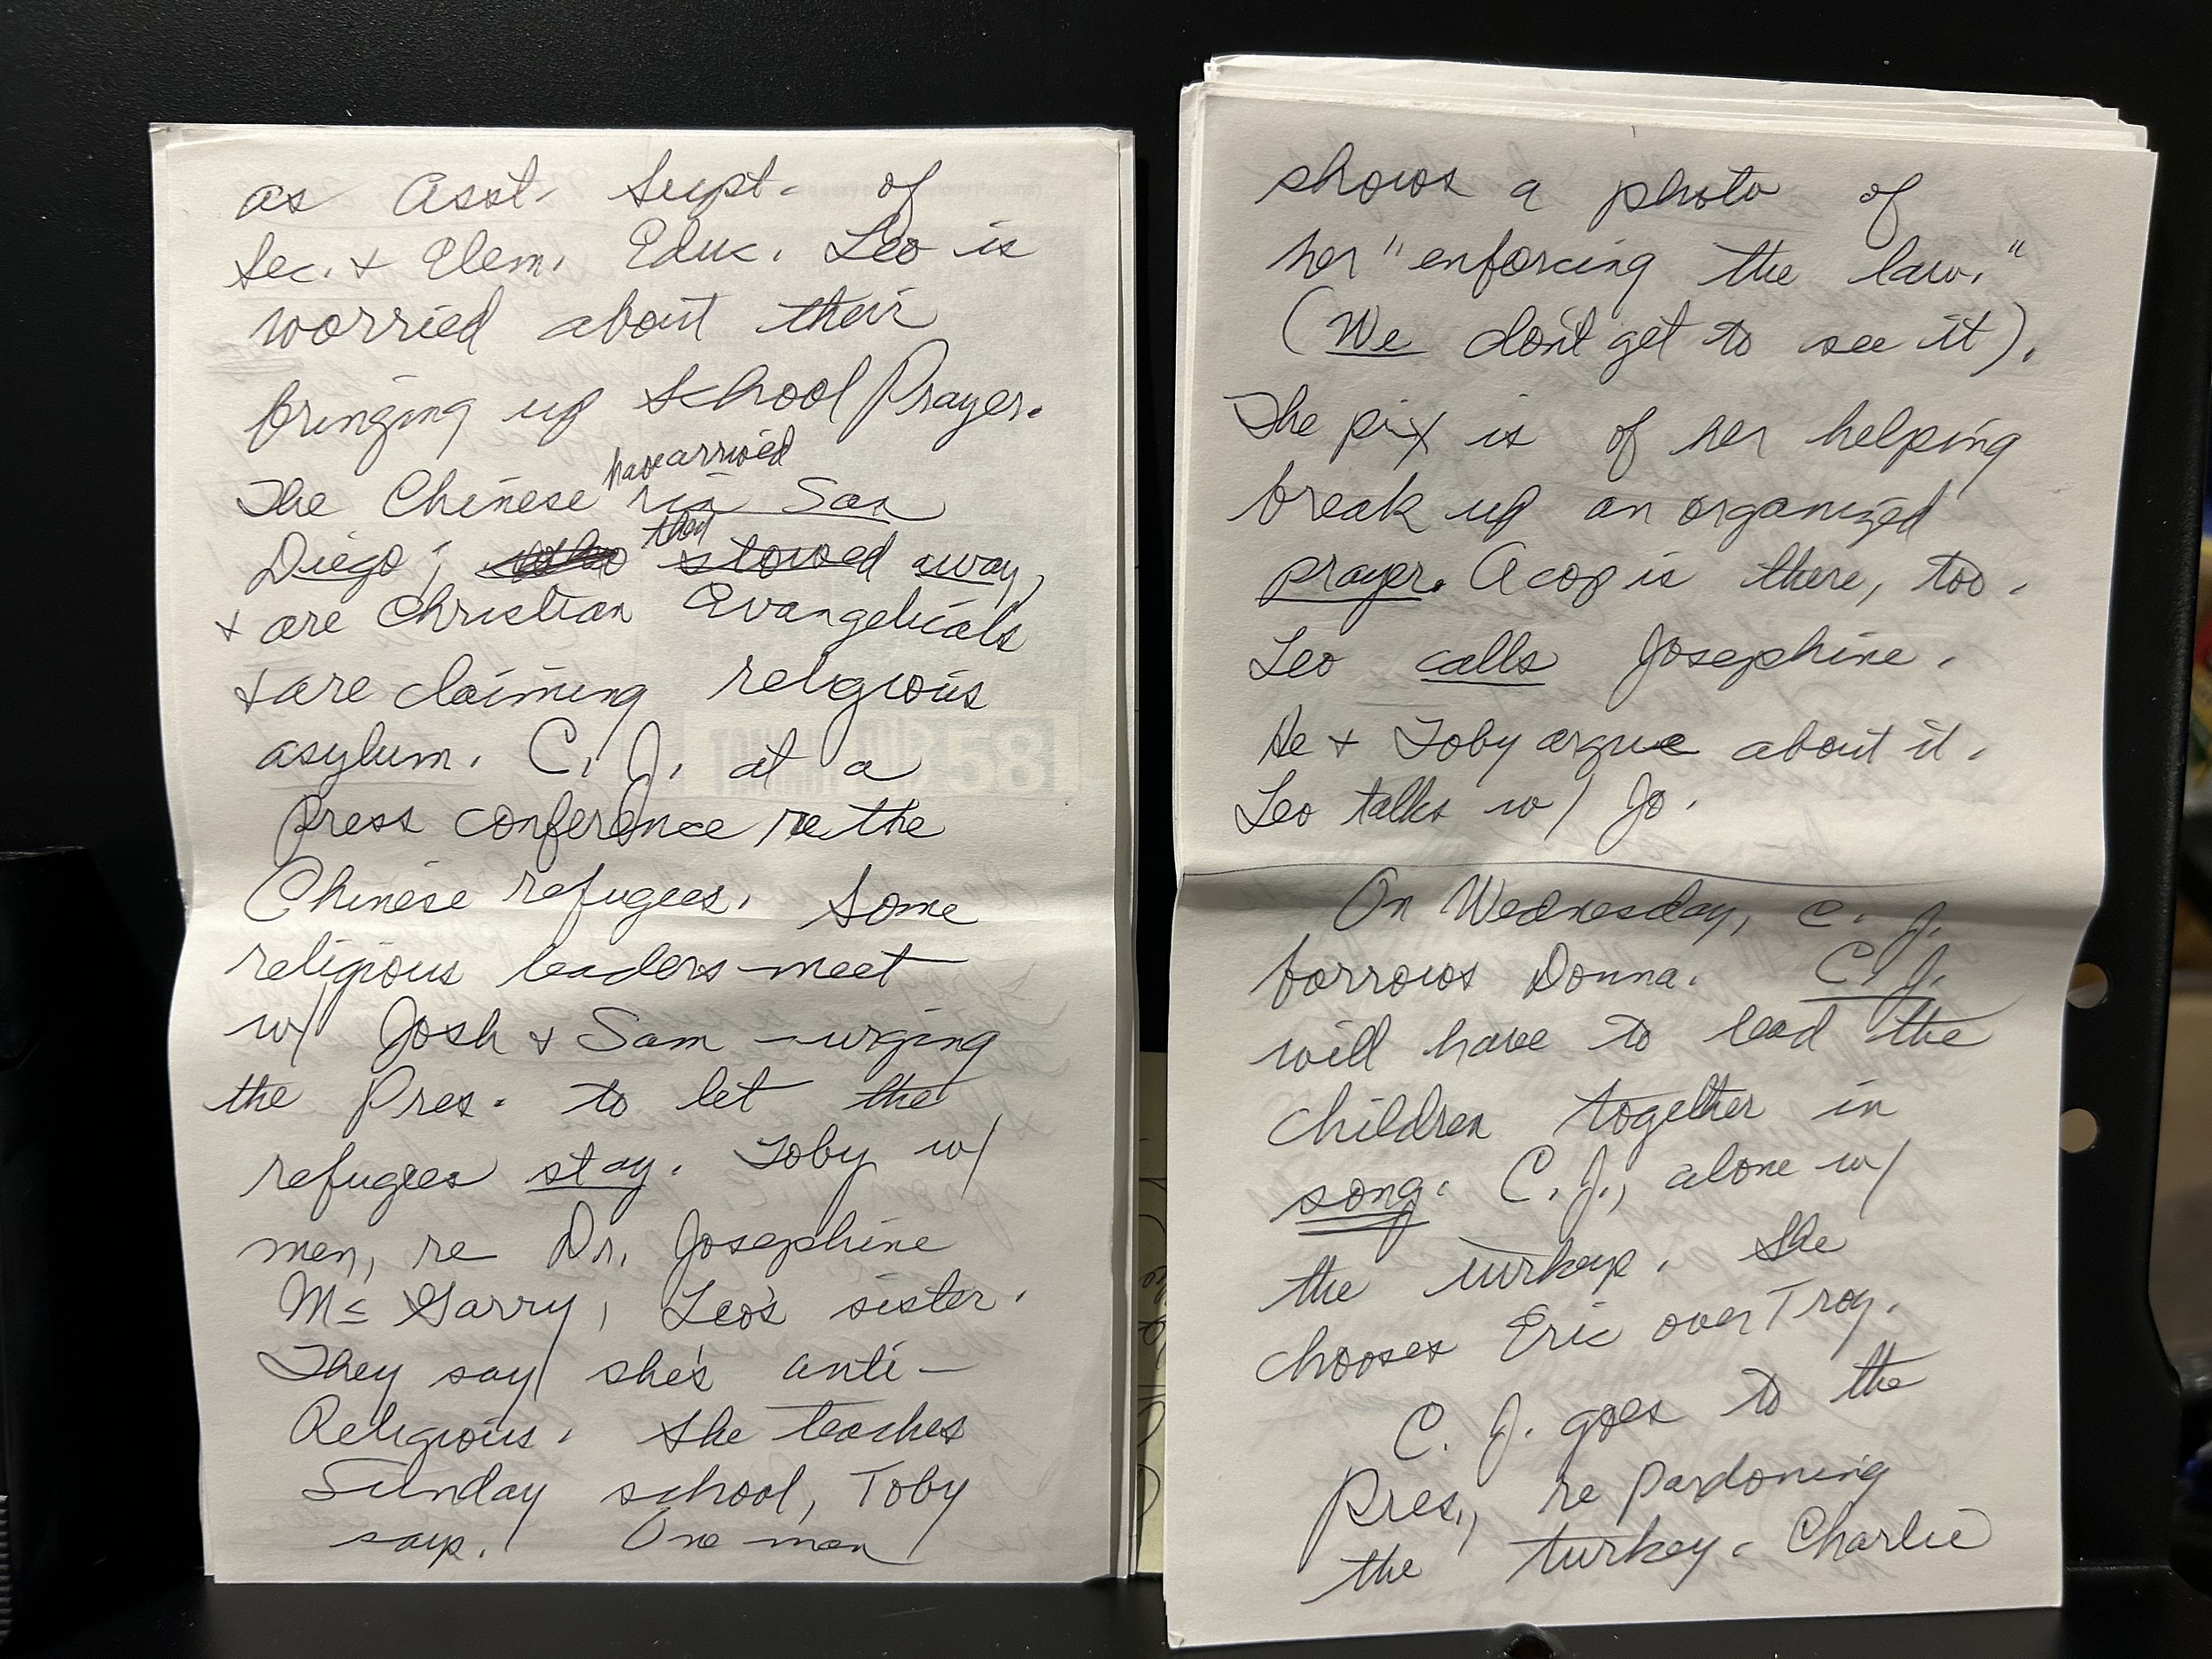 as Asst. Supt. of
Sec. & Elem. Educ. Leo is
worried about their
bringing up School Prayer.
have arrived
The Chinese in San
they
Diego; who stowed away,
& are Christian Evangelicals
& are claiming religious
asylum. C. J. at a
press conference re the
Chinese refugees. Some
religious leaders meet
w/ Josh & Sam - urging
the Pres. to let the
refugees stay. Toby w/
men, re Dr. Josephine
Mc Garry, Leo's sister.
They say she's anti-
Religious. She teaches
Sunday school, Toby
says. One man
shows a photo of
her "enforcing the law."
(We don't get to see it).
The pix is of her helping
break up an organized
prayer. A cop is there, too.
Leo calls Josephine.
He & Toby argue about it.
Leo talks w/ Jo.
On Wednesday, C. J.
borrows Donna. C. J.
will have to lead the
children together in
song. C. J., alone w/
the turkeys. She
chooses Eric over Troy.
C. J. goes to the
Pres., re pardoning
the turkey. Charlie